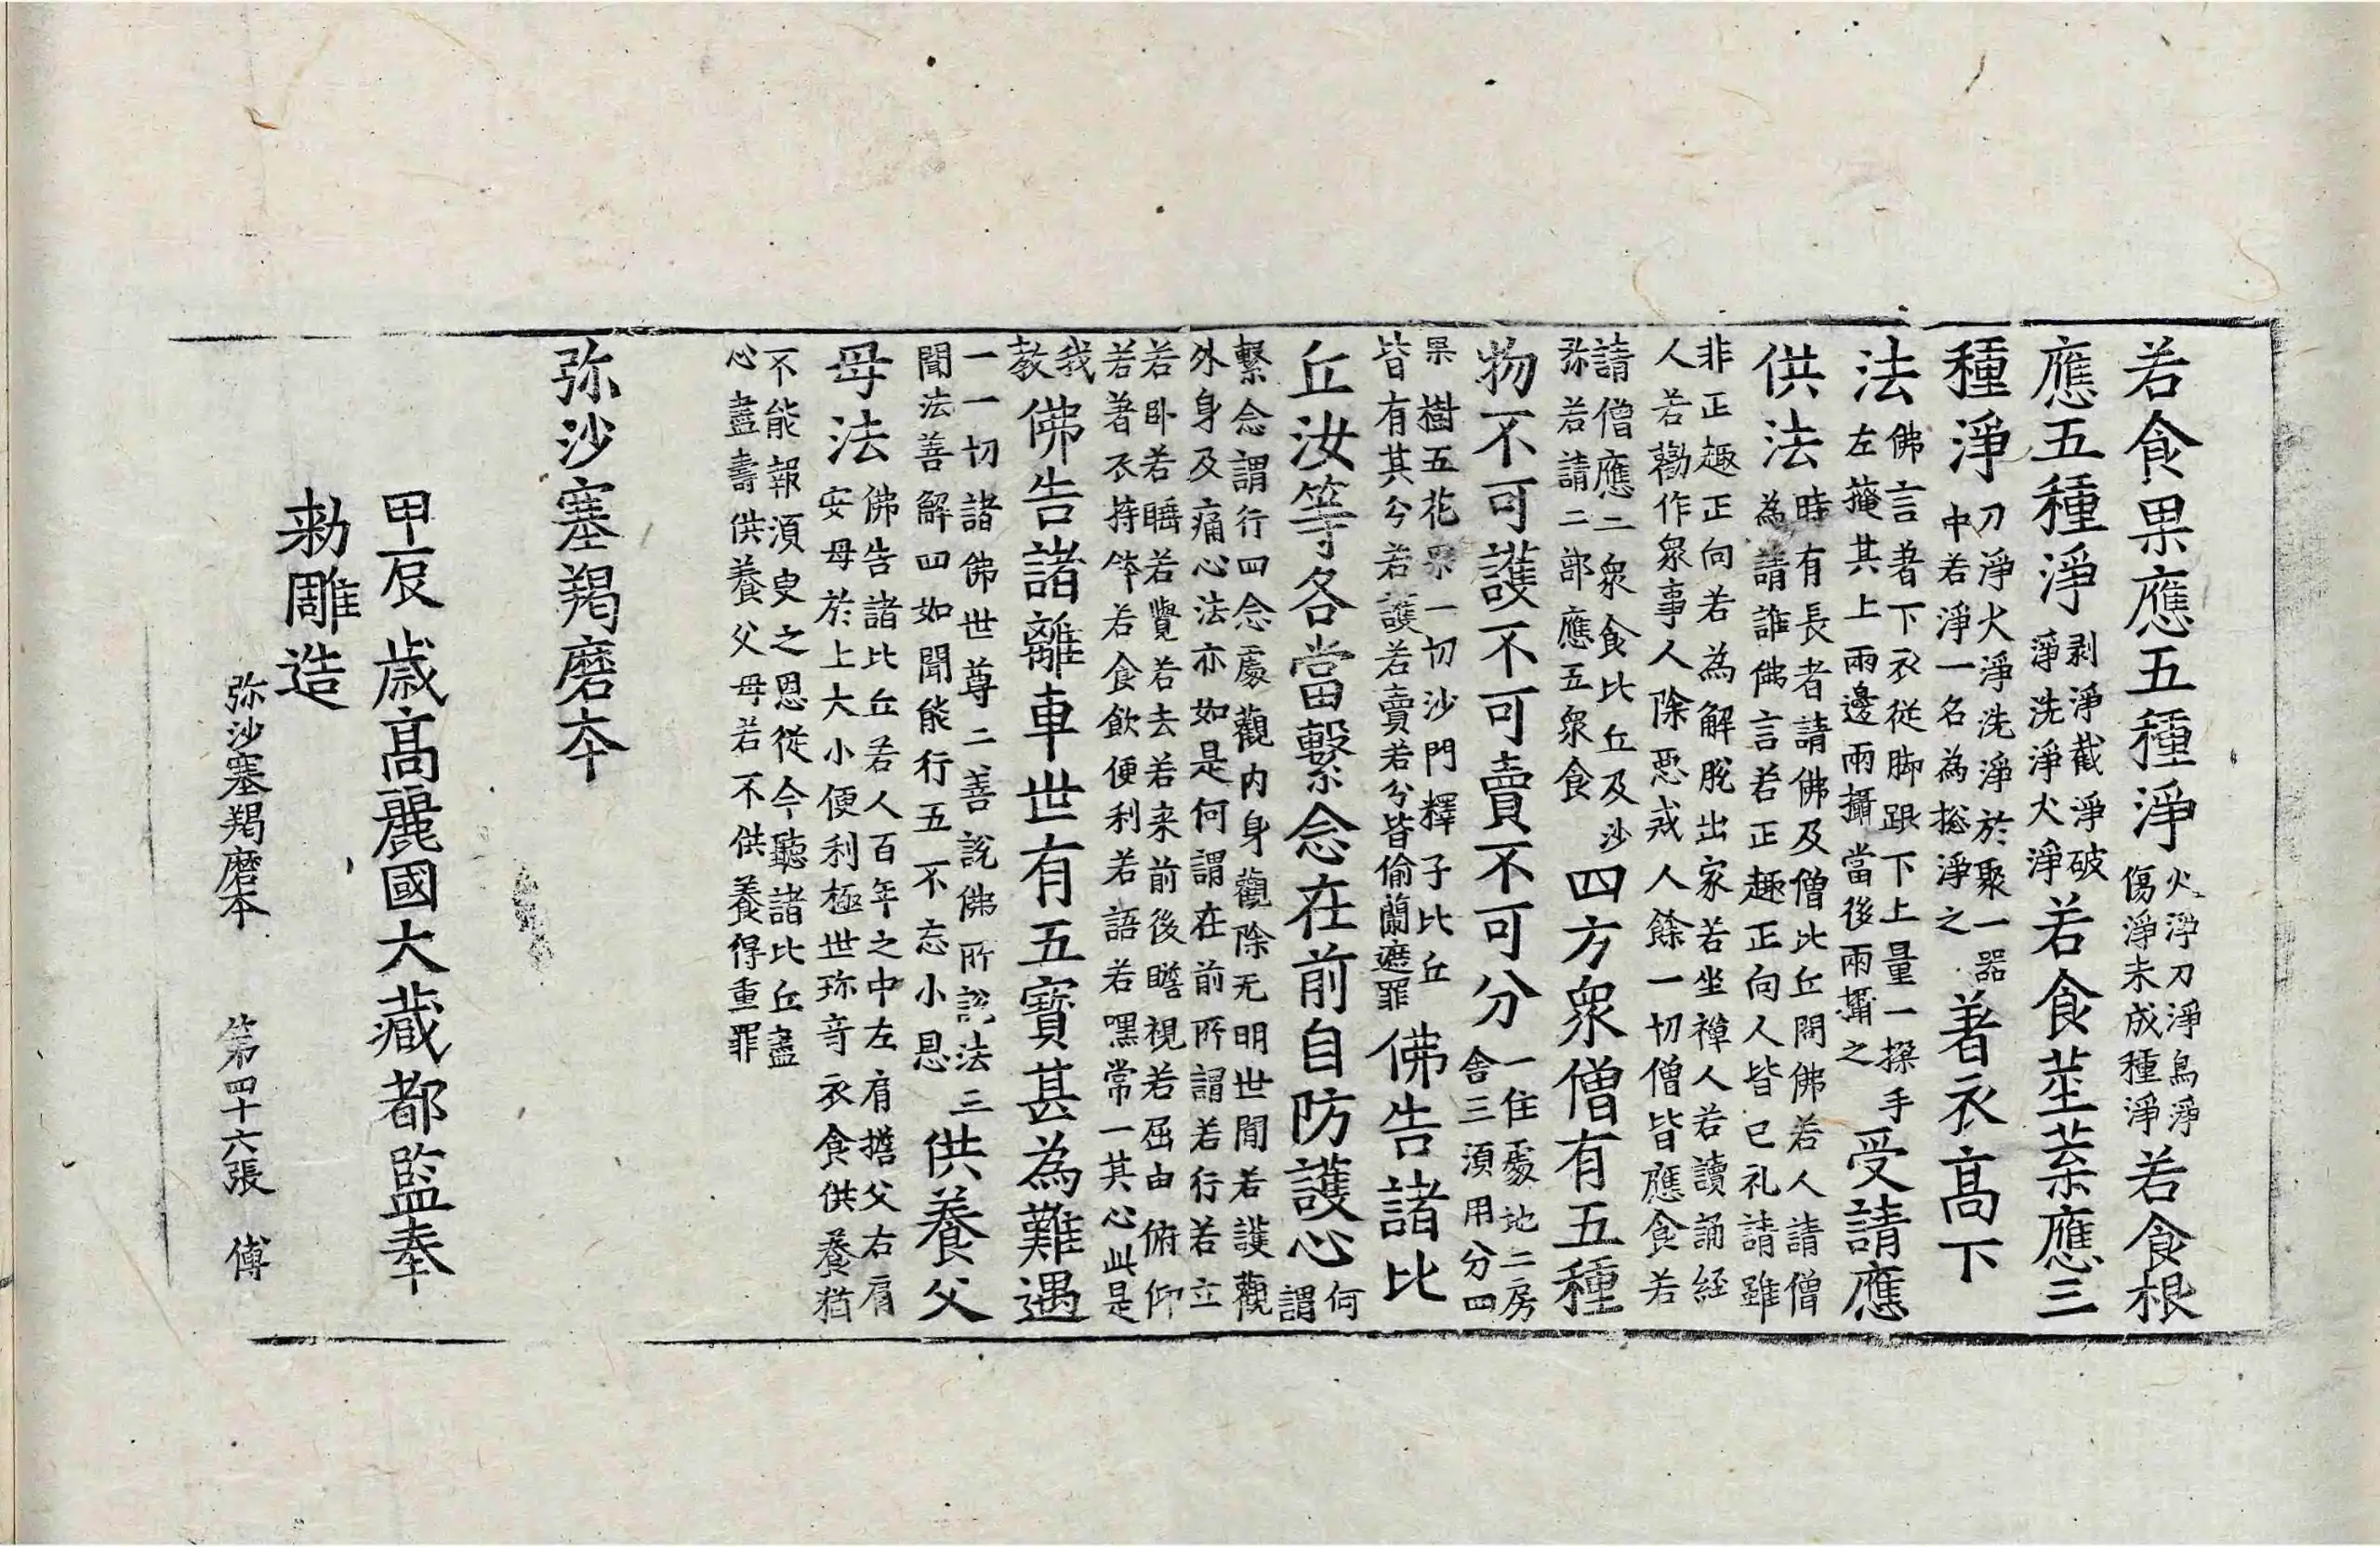 若食果應五種淨火淨刀淨鳥淨傷淨未成種淨若食根
應五種淨剥淨截淨破淨洗淨火淨若食莖葉應三
種淨刀淨火淨洗淨於聚一器中若淨一名為揔淨之著衣髙下
法佛言著下衣從脚踝下上量一搩手左掩其上兩邊兩攝當後兩攝之受請應
供法時有長者請佛及僧比丘問佛若人請僧為請誰佛言若正趣正向人皆已礼請雖
非正趣正向若為解脫出家若坐禪人若讀誦経人若勸作衆事人除惡戒人餘一切僧皆應食若
請僧應二衆食比丘及沙弥若請二部應五衆食四方衆僧有五種
物不可護不可賣不可分一住處地二房舍三湏用分四
果樹五花果一切沙門釋子比丘皆有其分若護若賣若分皆偷蘭遮罪佛告諸比
丘汝等各當繫念在前自防護心何謂
繫念謂行四念處觀内身觀除无明世間若護觀外身及痛心法亦如是何謂在前所謂若行若立
若卧若睡若覺若去若来前後瞻視若屈申俯仰若著衣持鉢若食飲便利若語若嘿常一其心此是
我教佛告諸離車世有五寳甚為難遇
一一切諸佛世尊二善說佛所說法三聞法善解四如聞能行五不忘小恩供養父
母法佛告諸比丘若人百年之中左肩擔父右肩安母於上大小便利極世珎奇衣食供養猶
不能報湏臾之恩從今聽諸比丘盡心盡壽供養父母若不供養得重罪
弥沙塞羯磨夲
甲辰歳髙麗國大藏都監奉
勑雕造
弥沙塞羯磨夲　第四十六張　傅